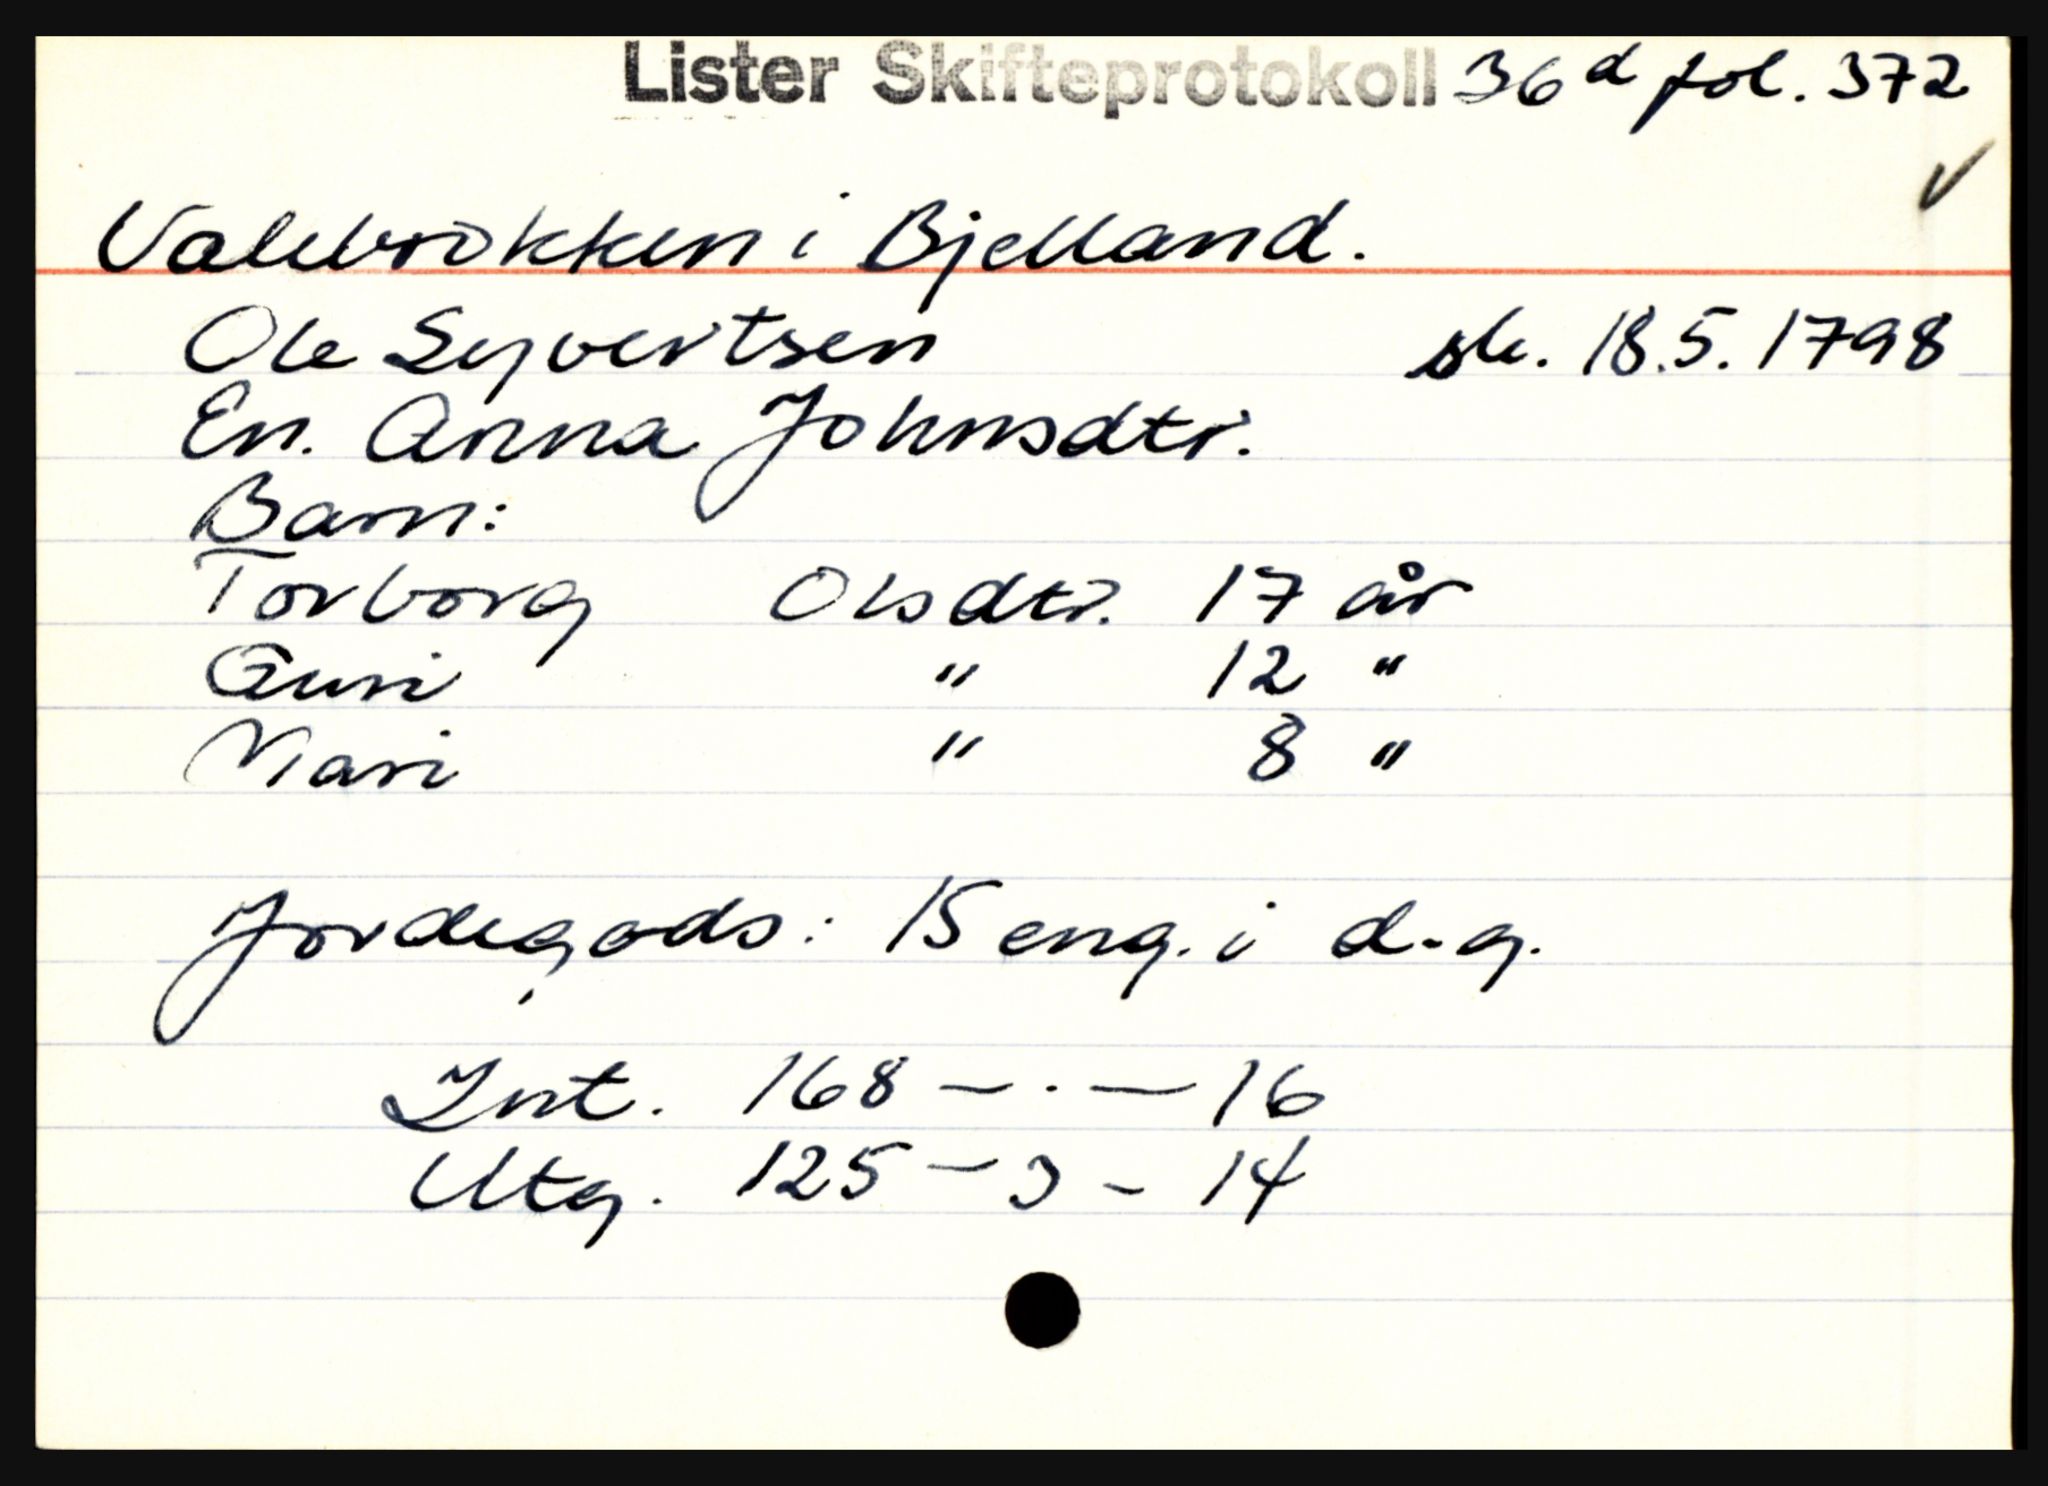 Lister Skifteprotokoll 36d fol. 372
Valebrokken i Bjelland.
Ole Syvertsen sk. 18.5.1798
En. Anna Johnsdtr.
Barn:
Torborg Olsdtr. 17 år
Guri " 12 "
Mari " 8 "
Jordegods: 15 eng. i d.g.
Int. 168 - . - 16
Utg. 125 - 3 - 14